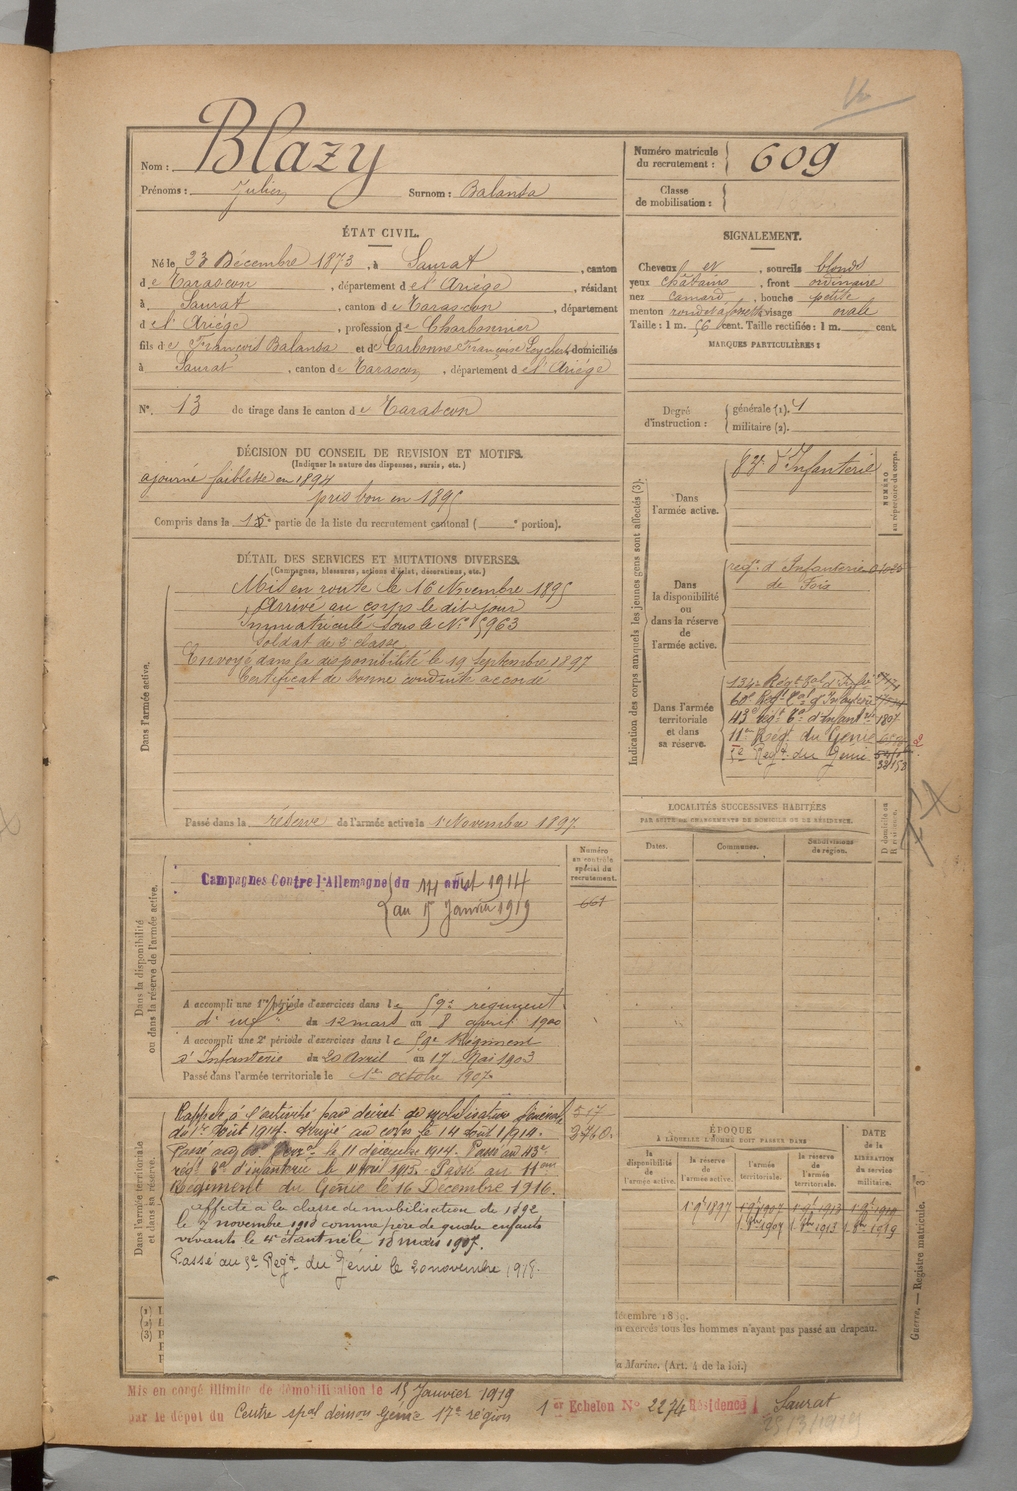 Nom : Blazy
Prénoms : Julien Surnom : Balansa
Numéro matricule du recrutement : 609
Classe de mobilisation :
ÉTAT CIVIL.
Né le 23 Décembre 1873, à Saurat, canton
de Tarascon, département de l'Ariège, résidant
à Saurat, canton de Tarascon, département
de l'Ariège, profession de Charbonnier
fils de François Balansa et de Carbonne Françoise domiciliés
à Saurat, canton de Tarascon, département de l'Ariège
N°. 13 de tirage dans le canton de Tarascon
SIGNALEMENT.
Cheveux et, sourcils blonds
yeux châtains, front ordinaire
nez camard, bouche petite
menton rond visage ovale
Taille : 1 m. 56 cent. Taille rectifiée : 1 m. cent.
MARQUES PARTICULIÈRES :
Degré d'instruction : générale (1).
militaire (2).
DÉCISION DU CONSEIL DE REVISION ET MOTIFS.
(Indiquer la nature des dispenses, sursis, etc.)
ajourné faiblesse en 1894
pris bon en 1895
Compris dans la partie de la liste du recrutement cantonal ( ° portion).
DÉTAIL DES SERVICES ET MUTATIONS DIVERSES.
(Campagnes, blessures, actions d'éclat, décorations, etc.)
Dans l'armée active.
Mis en route le 16 Novembre 1895
Arrivé au corps le dit jour
immatriculé sous le N° 5963
Soldat de 2e classe
Envoyé dans la disponibilité le 19 Septembre 1897
Certificat de bonne conduite accordé
Passé dans la réserve de l'armée active le 1er Novembre 1897
Indication des corps auxquels les jeunes gens sont affectés (3).
NUMÉRO au répertoire du corps.
Dans l'armée active.
d'Infanterie
Dans la disponibilité ou dans la réserve de l'armée active.
reg. d'Infanterie
de Foix
Dans l'armée territoriale et dans sa réserve.
134e Régt Tal d'Infie
60e Regt Tal d'Infanterie
43e Régt Tal d'Infanterie 1807
11e Regt du Génie
5e Regt du Génie
LOCALITÉS SUCCESSIVES HABITÉES
PAR SUITE DE CHANGEMENTS DE DOMICILE OU DE RÉSIDENCE.
Dates. Communes. Subdivisions de région. D domicile ou R résidence.
Dans la disponibilité ou dans la réserve de l'armée active.
Numéro au contrôle spécial du recrutement.
661
Campagnes Contre l'Allemagne du 14 août 1914
au 15 Janvier 1919
A accompli une 1re période d'exercices dans le 59e régiment
d'infie du 12 mars au 8 avril 1900
A accompli une 2e période d'exercices dans le 59e Régiment
d'Infanterie du 20 Avril au 17 Mai 1903
Passé dans l'armée territoriale le 1er octobre 1907
Dans l'armée territoriale et dans sa réserve.
Rappelé à l'activité par décret de mobilisation Générale
du 1er Août 1914. Arrivé au corps le 14 août 1914.
Passé au 60e le 11 décembre 1914. Passé au 43e
régt d'infanterie le avril 1915. Passé au 11eme
Régiment du Génie le 16 Décembre 1916.
affecté à la classe de mobilisation de 1892
le 7 novembre 1918 comme père de quatre enfants
vivants le 4e étant né le 18 mars 1907.
Passé au 5e Regt du Génie le 20 novembre 1918.
517
3740
ÉPOQUE
A LAQUELLE L'HOMME DOIT PASSER DANS
la disponibilité de l'armée active.
la réserve de l'armée active.
l'armée territoriale.
la réserve de l'armée territoriale.
DATE de la LIBÉRATION du service militaire.
1 9bre 1897
1 8bre 1907 1 8bre 1913 1 8bre 1919
(1)
(2)
(3)
décembre 18
exercés tous les hommes n'ayant pas passé au drapeau.
la Marine. (Art. 4 de la loi.)
Guerre. — Registre matricule. 3
Mis en congé illimité de démobilisation le 15 Janvier 1919
par le dépôt du Centre spal démon Génie 17e région 1er Echelon N° 2274 Résidence Saurat